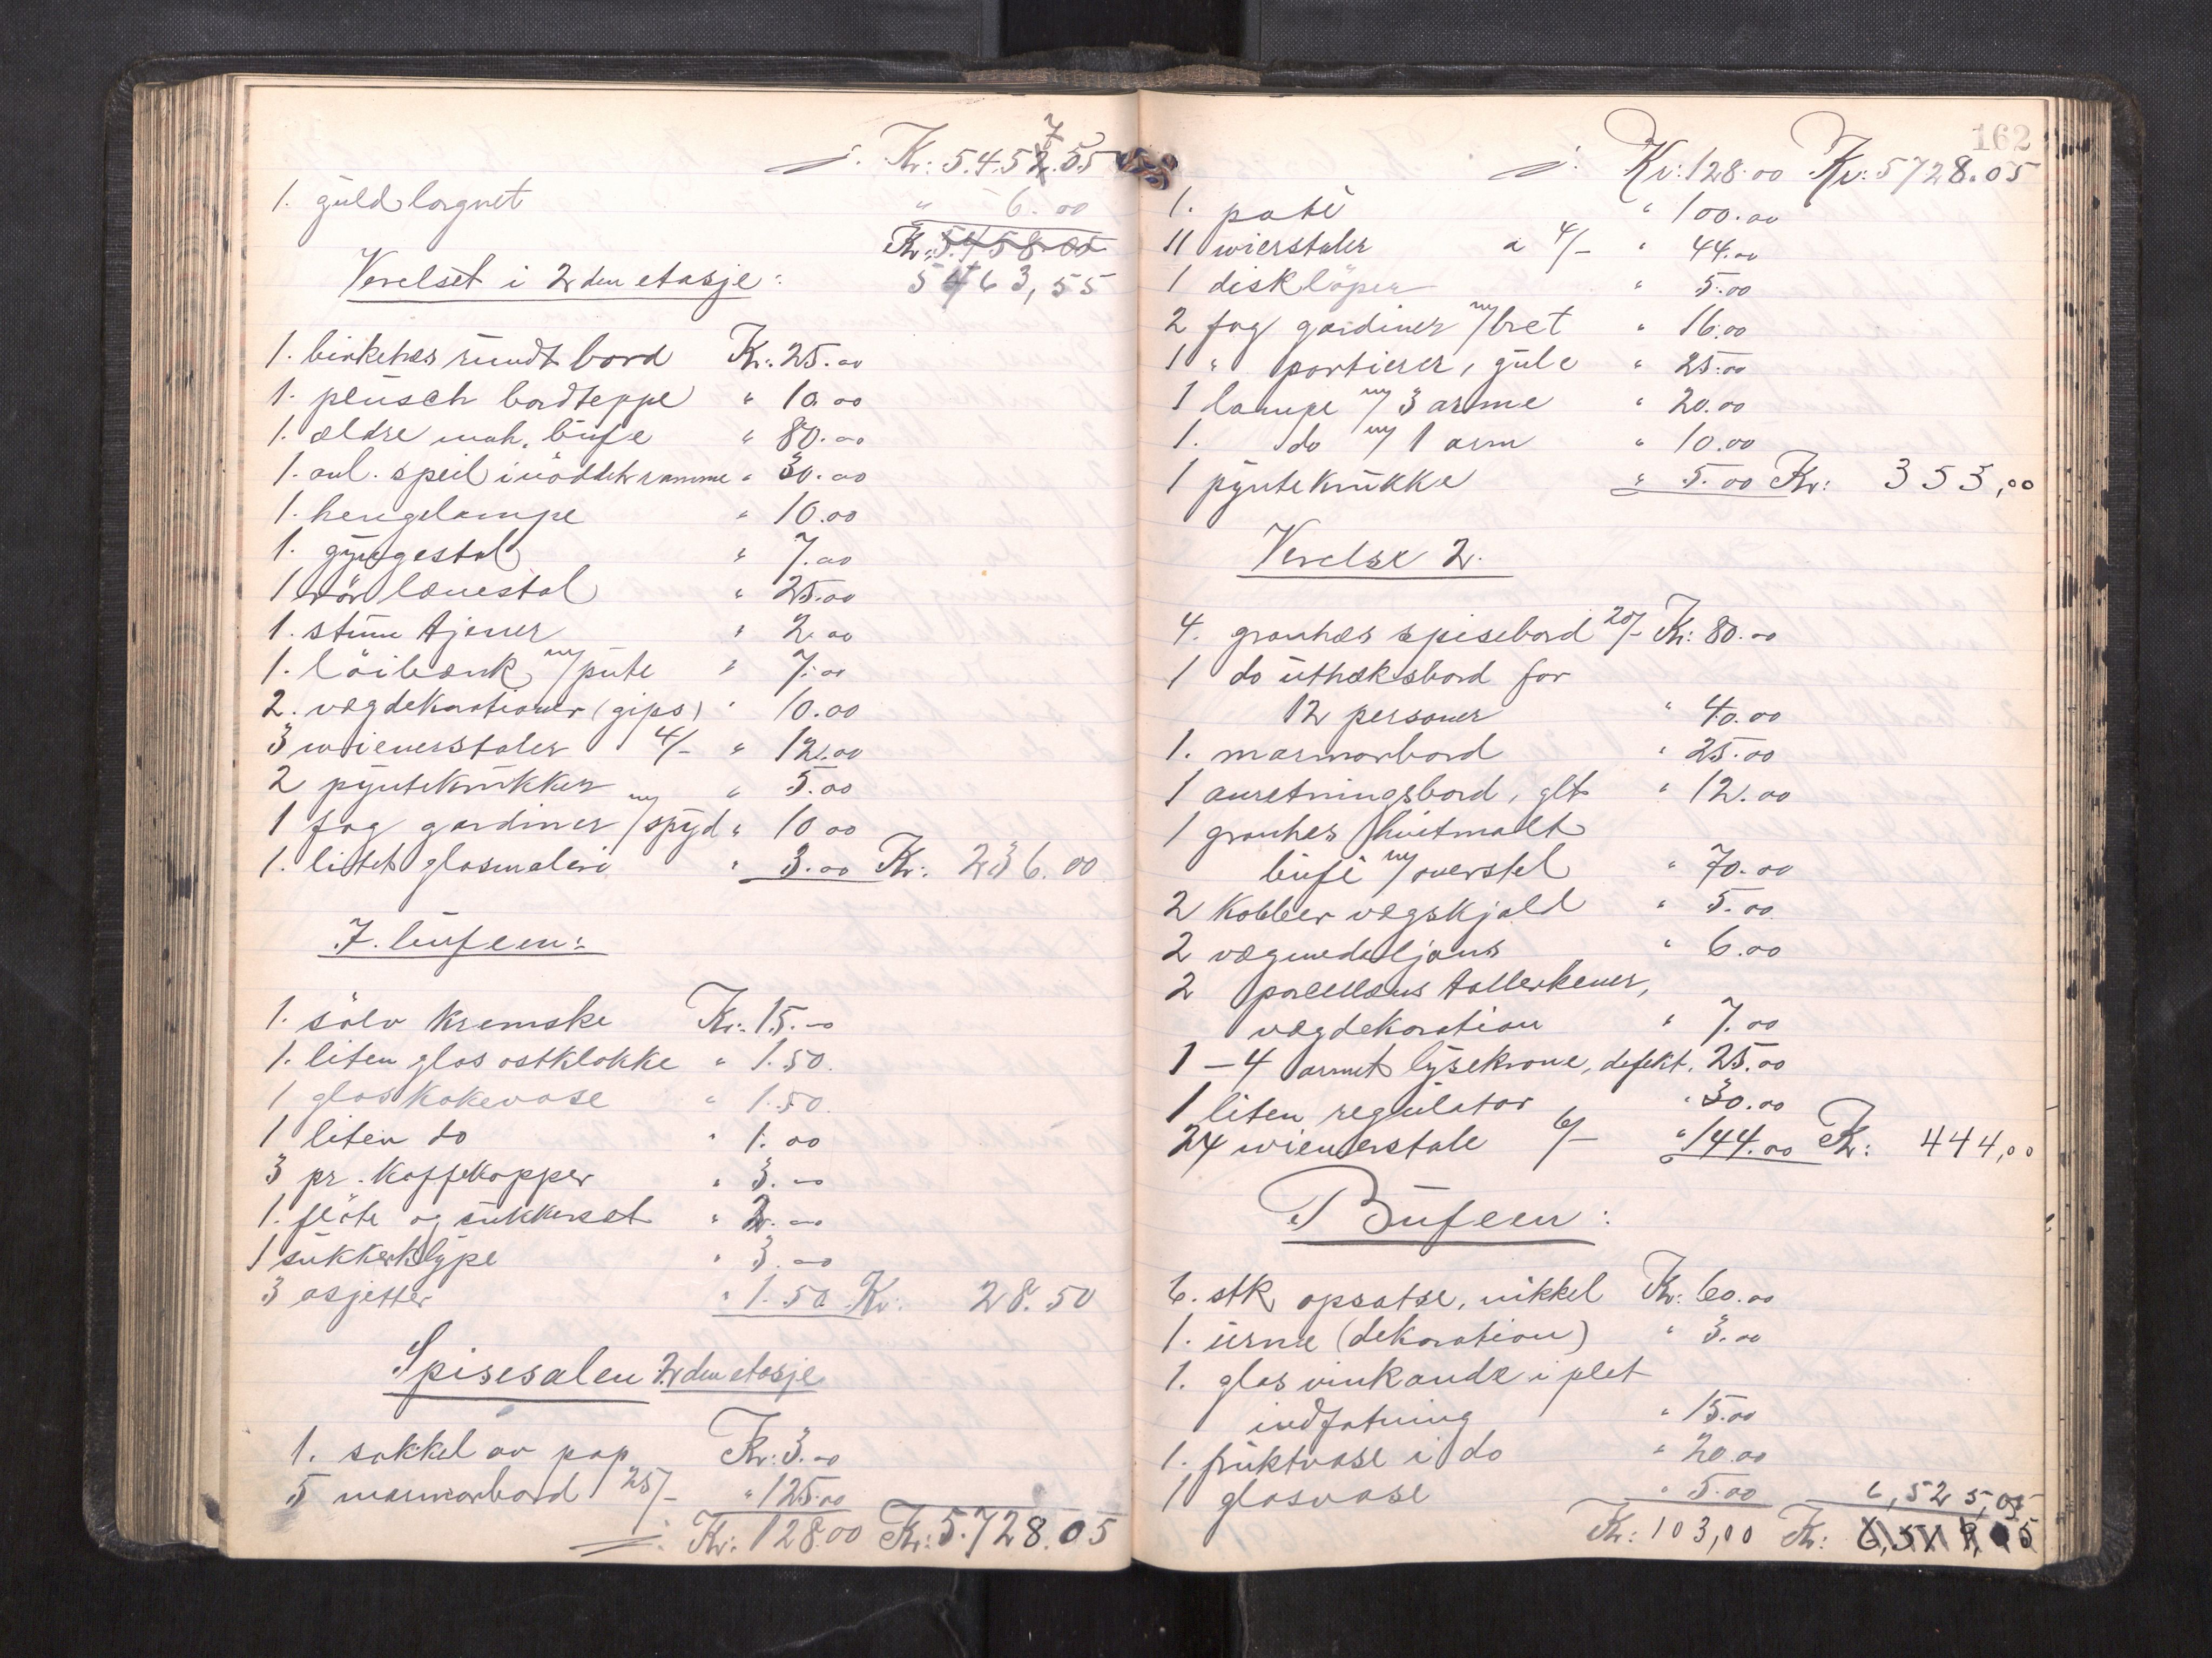 Kr: 5.457.55
1. guld lorgnet " 6.00
Kr: 5.458.05
5463,55
Verelset i 2den etasje:
1. birketræs rundt bord Kr: 25.00
1. plüsch bordteppe " 10.00
1. ældre mah. bufe " 80.00
1. avl. speil i nöddetr ramme " 30.00
1. hengelampe " 10.00
1. gyngestol " 7.00
1 rör lænestol " 25.00
1. stum tjener " 2.00
1. löibænk m/ pute " 7.00
2. vægdekorationer (gips) " 10.00
3 wienerstoler 4/- " 12.00
2 pyntekrukker " 5.00
1 fag gardiner m/ spyd " 10 00
1. litet glasmaleri " 3.00 Kr: 236.00
I. bufeen:
1. sölv kremske Kr: 15.00
1. liten glas ostklokke " 1.50.
1 glas kakevase " 1.50.
1 liten do " 1.00
3 pr. kaffekopper " 3.00
1. flöte og sukkersæt " 2.00
1 sukkerklype " 3.00
3 asjetter " 1.50 Kr: 28.50
Spisesalen 2den etasje
1. sokkel av pap Kr: 3.00
5 marmorbord 25/- " 125.00
Kr: 128.00 Kr: 5.728.05
162
Kr: 128.00 Kr: 5728.05
1. poté " 100.00
11 wierstoler a 4/- " 44.00
1 disklöper " 5.00
2 fag gardiner m/ bret " 16.00
1 " portierer, gule " 25.00
1 lampe m/ 3 arme " 20.00
1. do m/ 1 arm " 10.00
1 pyntekrukke " 5.00 Kr: 353,00
Verelse 2.
4. grantræs spisebord 20/- Kr: 80.00
1 do uttræksbord for
12 personer " 40.00
1. marmorbord " 25.00
1 anretningsbord, glt " 12.00
1 grantræs hvitmalt
bufé m/ overstel " 70.00
2 kobber vægskjold " 5.00
2 vægmedaljons " 6.00
2 porcellæns tallerkener,
vægdekoration " 7.00
1 – 4 armet lysekrone, defekt. 25.00
1 liten regulator " 30.00
24 wienerstole 6/- " 144.00 Kr: 444,00
Bufeen:
6. stk opsatse, nikkel Kr: 60.00
1. urne (dekoration) " 3.00
1. glas vinkande i plet
indfatning " 15.00
1. fruktvase i do " 20.00
1 glasvase " 5.00 6,525,05
Kr: 103,00 Kr: